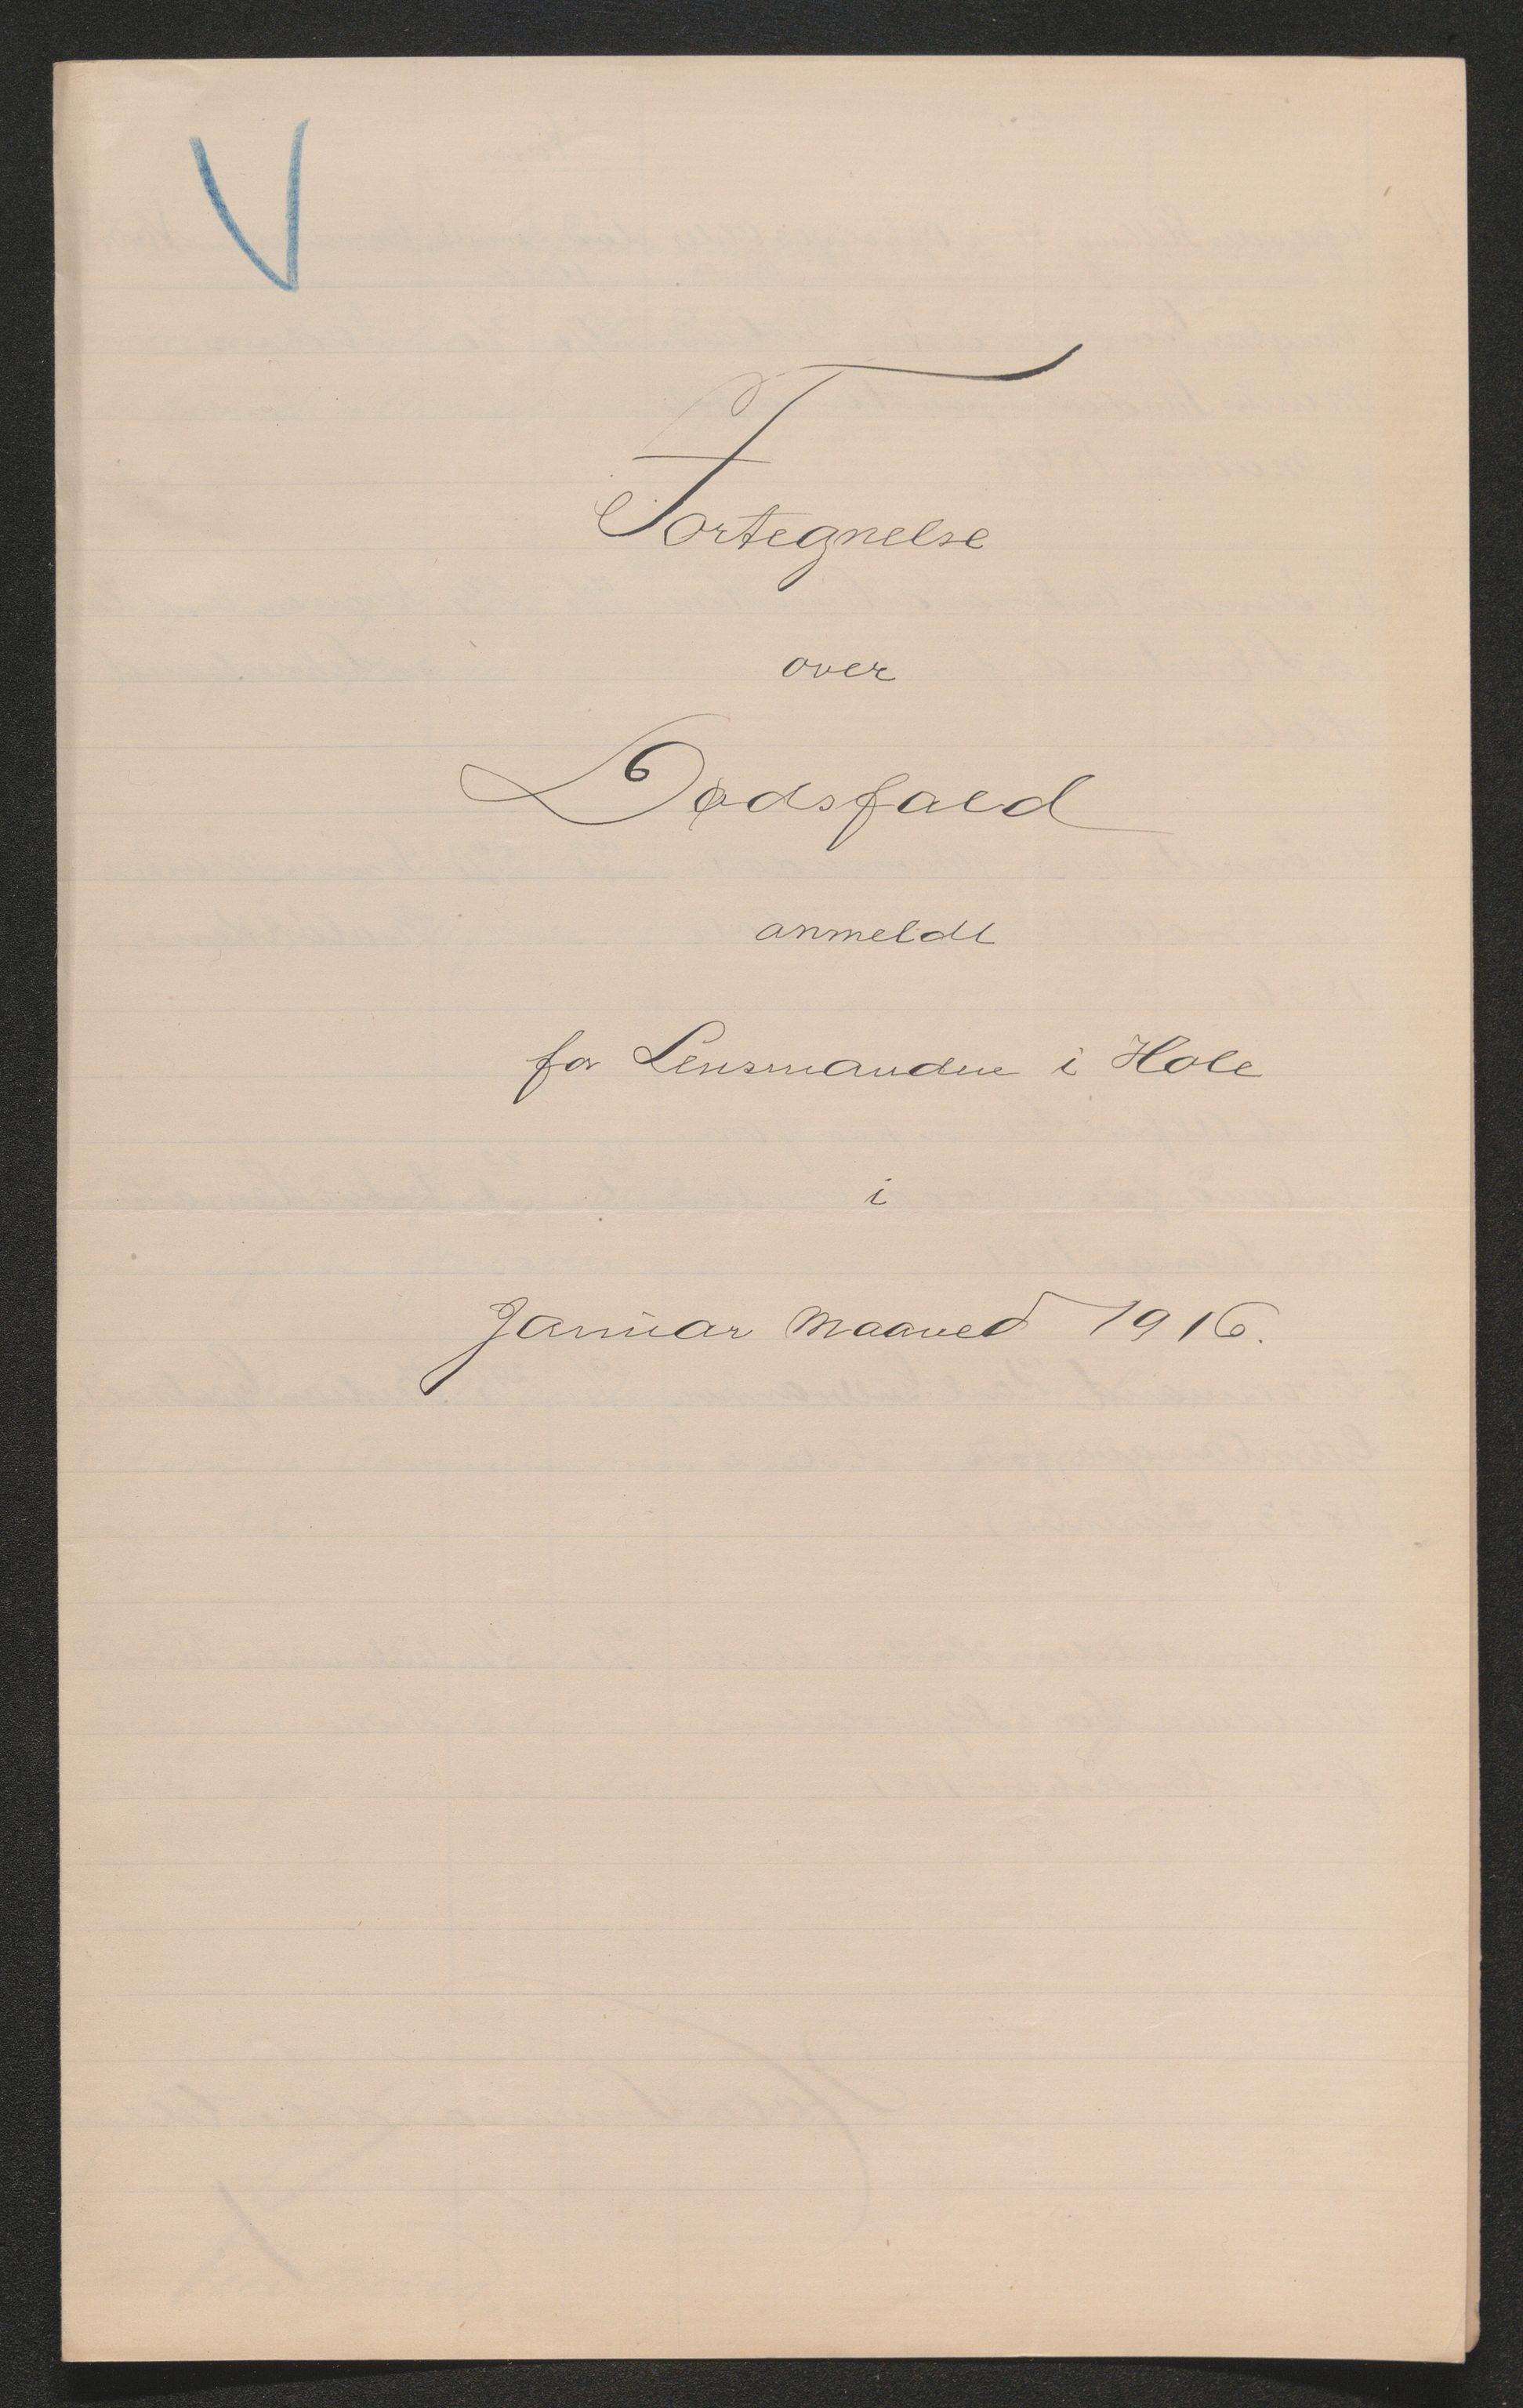 V
Fortegnelse
over
Dødsfald
anmeldt
for Lensmanden i Hole
i
Januar Maaned 1916.